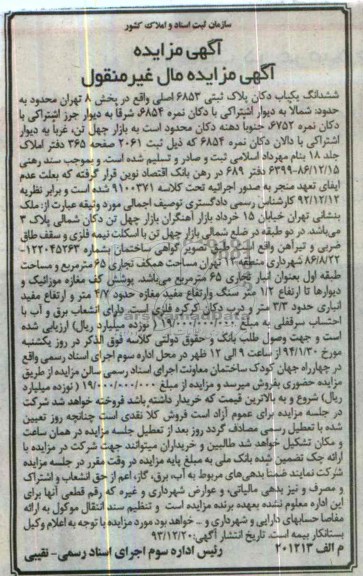 سازمان ثبت اسناد و املاک کشور
آگهی مزایده
آگهی مزایده مال غیرمنقول
ششدانگ یکباب دکان پلاک ثبتی ۶۸۵۳ اصلی واقع در بخش ۸ تهران محدود به
حدود: شمالا به دیوار اشتراکی با دکان نمره ۶۸۵۴، شرقا به دیوار جرز اشتراکی با
دکان نمره ۶۷۵۲، جنوبا دهنه دکان محدود است به بازار چهل تن، غربا به دیوار
اشتراکی با دالان دکان نمره ۶۸۵۴ که ذیل ثبت ۲۰۶۱ صفحه ۳۶۵ دفتر املاک
جلد ۱۸ بنام مهرداد اسلامی ثبت و صادر و تسلیم شده است. و بموجب سند رهنی
۶۳۹۹-۸۶/۱۲/۱۵ دفتر ۶۸۹ در رهن بانک اقتصاد نوین قرار گرفته که بعلت عدم
ایفای تعهد منجر به صدور اجرائیه تحت کلاسه ۹۱۰۰۳۷۱ شده است و برابر نظریه
۹۲/۱۲/۱۲ کارشناس رسمی دادگستری توصیف اجمالی مورد وثیقه عبارت از: ملک
بنشانی تهران خیابان ۱۵ خرداد بازار آهنگران بازار چهل تن دکان شمالی پلاک ۳
می‌باشد. در دو طبقه در ضلع شمالی بازار چهل تن با اسکلت نیمه فلزی و سقف طاق
ضربی و تیرآهن واقع است. طبق تصویر گواهی ساختمان بشماره ۱۲۲۰۴۵۲۶۳-
۸۶/۸/۲۲ شهرداری منطقه ۱۲ تهران مساحت همکف تجاری ۶۵ مترمربع و مساحت
طبقه اول بعنوان انبار تجاری ۶۵ مترمربع می‌باشد. پوشش کف مغازه موزائیک و
دیوارها تا ارتفاع ۱/۲ متر سنگ وارتفاع مفید مغازه حدود ۴/۷ متر و ارتفاع مفید
انباری حدود ۳/۳ متر و درب دکان کرکره فلزی است. دارای انشعاب برق و آب با
احتساب سرقفلی به مبلغ ۱۹/۰۰۰/۰۰۰/۰۰۰ (نوزده میلیارد ریال) ارزیابی شده
است و جهت وصول طلب بانک و حقوق دولتی کلاسه فوق الذکر در روز یکشنبه
مورخ ۹۴/۱/۳۰ از ساعت ۹ الی ۱۲ ظهر در محل اداره سوم اجرای اسناد رسمی واقع
در چهارراه جهان کودک ساختمان معاونت اجرای اسناد رسمی سالن مزایده از طریق
مزایده حضوری بفروش میرسد و مزایده از مبلغ ۱۹/۰۰۰/۰۰۰/۰۰۰ (نوزده میلیارد
ریال) شروع و به بالاترین قیمت که خریدار داشته باشد فروخته خواهد شد شرکت
در جلسه مزایده برای عموم آزاد است فروش کلا نقدی است چنانچه روز تعیین
شده با تعطیل رسمی مصادف گردد روز بعد از تعطیل جلسه مزایده در همان ساعت
و مکان تشکیل خواهد شد طالبین و خریداران میتوانند جهت شرکت در مزایده با
ارائه چک تضمین شده بانک ملی به مبلغ پایه مزایده در وقت مقرر در جلسه مزایده
شرکت نمایند ضمنا بدهی‌های مربوط به آب، برق، گاز، اعم از حق انشعاب و اشتراک
و مصرف و نیز بدهی مالیاتی، و عوارض شهرداری و غیره که رقم قطعی آنها برای
این اداره معلوم نشده بعهده برنده مزایده است و تنظیم سند انتقال موکول به ارائه
مفاصا حسابهای دارایی و شهرداری و ... خواهد بود مورد مزایده با توجه به اعلام وکیل
بستانکار بیمه است. تاریخ انتشار آگهی: ۹۳/۱۲/۲۰
م الف ۲۰۱۲۱۳ رئیس اداره سوم اجرای اسناد رسمی- نقیبی